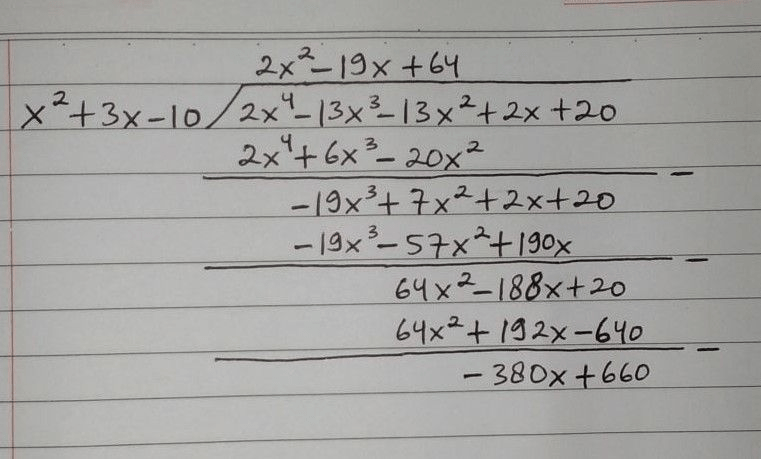 2x² - 19x + 64
x² + 3x - 10 / 2x⁴ - 13x³ - 13x² + 2x + 20
2x⁴ + 6x³ - 20x²
-
-19x³ + 7x² + 2x + 20
-19x³ - 57x² + 190x
-
64x² - 188x + 20
64x² + 192x - 640
-
-380x + 660